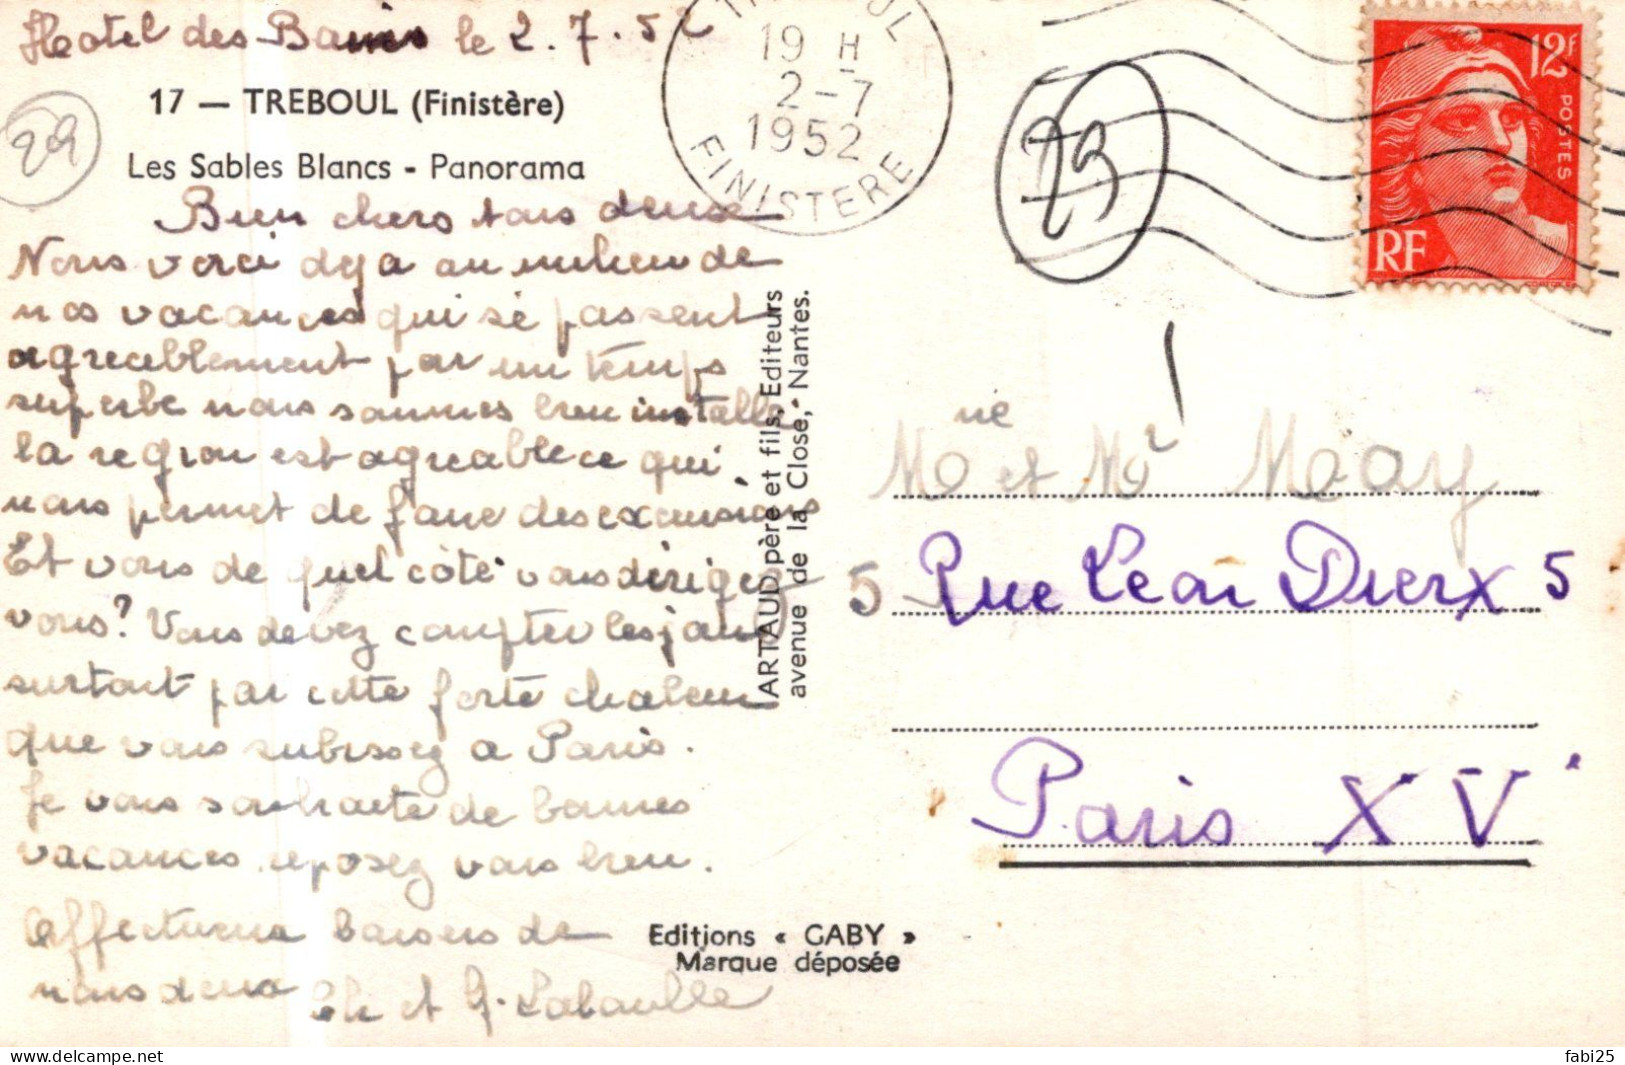 Hotel des Bains le 2.7.52
17 — TREBOUL (Finistère)
Les Sables Blancs - Panorama
29
TREBOUL
19 H
2-7
1952
FINISTERE
29
12F
POSTES
RF
Bien chers tous deux
Nous voici deja au milieu de
nos vacances qui se passent
agreablement par un temps
superbe nous sommes bien installé
la region est agreable ce qui
nous permet de faire des excursions
Et vous de quel côté vous dirigez
vous? Vous devez compter les jours
surtout par cette forte chaleur
que vous subissez a Paris.
Je vous souhaite de bonnes
vacances reposez vous bien.
Affectueux baisers de
nous deux et G. Labaulle
ARTAUD père et fils, Editeurs
avenue de la Close, - Nantes.
Editions « GABY »
Marque déposée
Me et Mr
5 Rue Leon Dierx 5
Paris XV
fabi25
https://www.delcampe.net